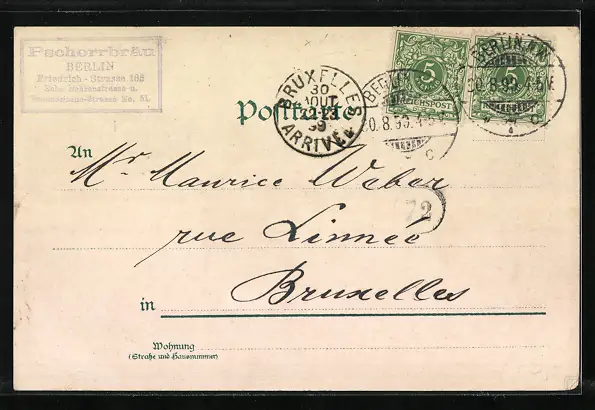 Pschorrbräu
BERLIN
Friedrich-Strasse 165
Nahe Behrenstrasse u.
Strasse No. 51.
BRUXELLES
30
AOUT
99
ARRIVEE
BERLIN
8.99.
5
REICHSPOST
BERLIN
8.99.
Postkarte
An
Mr Maurice Weber
72
rue Linnée
in Bruxelles
Wohnung
(Straße und Hausnummer)